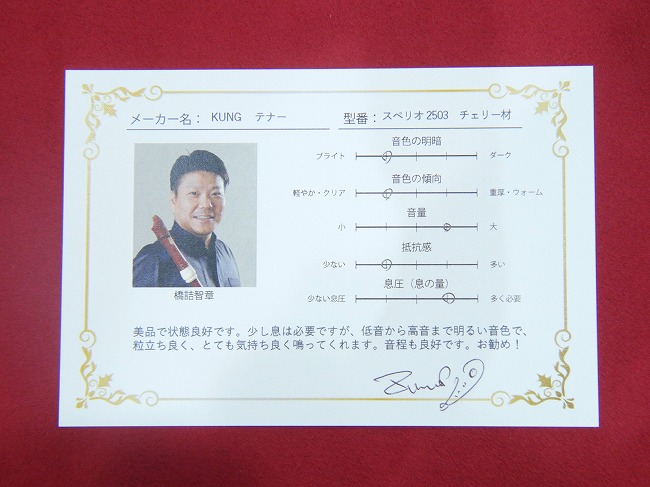 メーカー名： KUNG テナー
型番：スペリオ2503 チェリー材
音色の明暗
ブライト ダーク
音色の傾向
軽やか・クリア 重厚・ウォーム
音量
小 大
抵抗感
少ない 多い
息圧（息の量）
少ない息圧 多く必要
橋詰智章
美品で状態良好です。少し息は必要ですが、低音から高音まで明るい音色で、
粒立ち良く、とても気持ち良く鳴ってくれます。音程も良好です。お勧め！